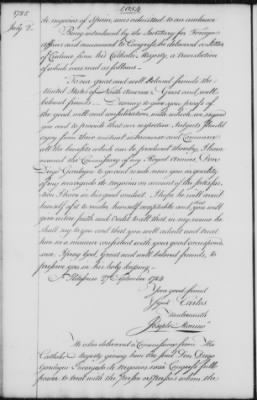 1785
July 2.
de negocios of Spain, was admitted to an audience
Being introduced by the Secretary for Foreign
affairs and announced to Congress, he delivered a letter
of Credence from his Catholic Majesty, a translation
of which was read as follows.
To our great and well beloved friends the
United States of North America. Great and well
beloved friends. Desiring to give you proofs of
the good will and confidence, with which we regard
you and to promote that our respective subjects should
enjoy from their mutual intercourse and Commerce
all the benefits which can be produced thereby, I have
named the Commissary of my Royal Armies, Don
Diego Gardoqui to go and reside near you in quality
of my encargado de negocios on account of the satisfac-
tion I have in his good conduct. I hope he will and
himself of it to render himself acceptable and that you will
give entire faith and credit to all that in my name he
shall say to you and that you will admit and treat
him in a manner consistent with your good correspond-
ence. I pray God, Great and well beloved friends, to
preserve you in his holy keeping.
St Ildefonso 27 September 1784
Your good friend
signed Carlos
Joseph Monino
He also delivered a Commission from his
Catholic Majesty giving him the said Don Diego
Gardoqui Encargado de Negocios near Congress full
power to treat with the person or persons whom the